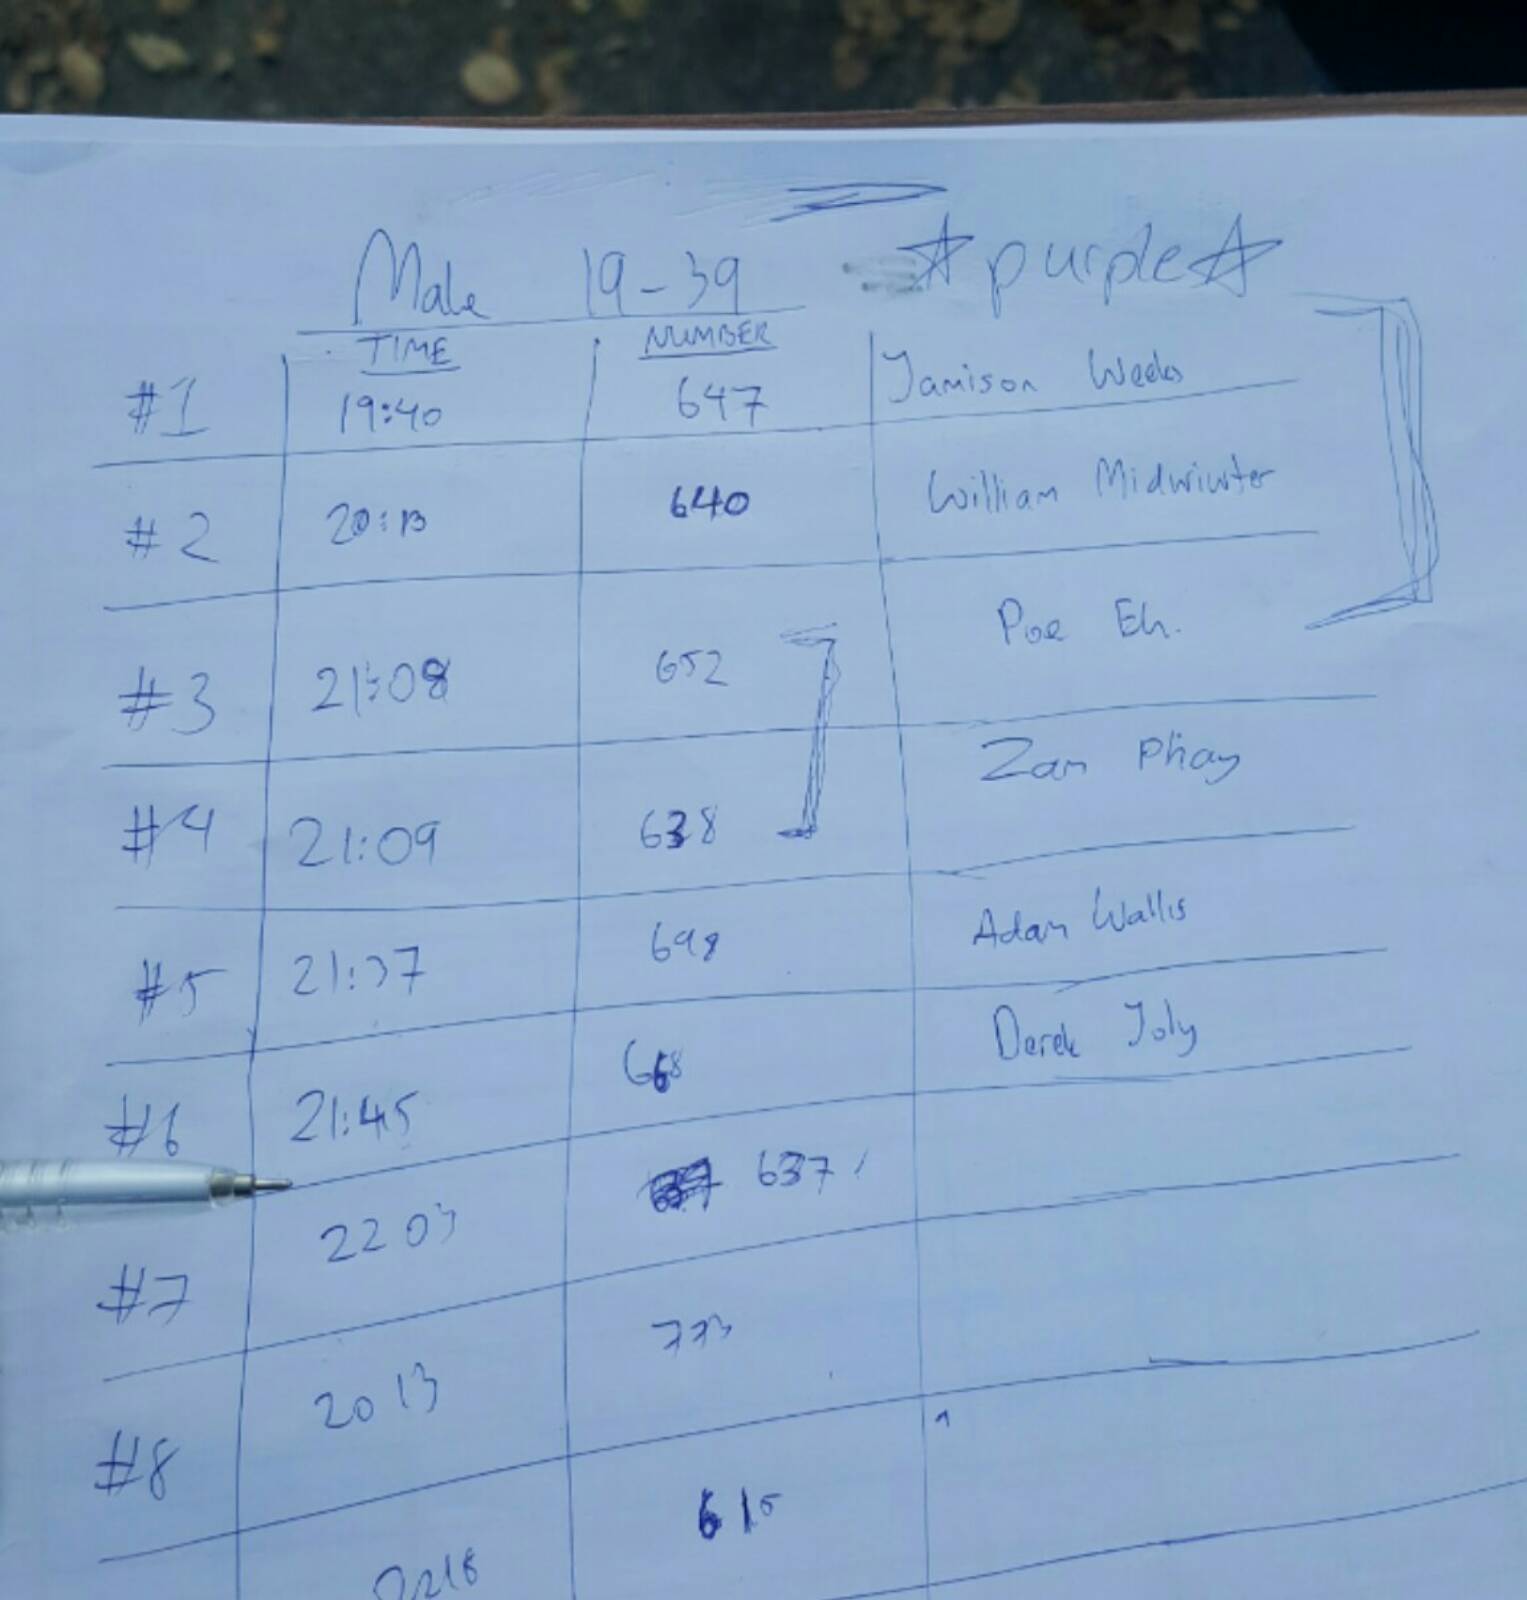 Male 19-39 ☆purple☆
TIME NUMBER
#1 19:40 647 Jamison Weeks
#2 20:13 640 William Midwiwter
#3 21:08 652 Poe Eh.
#4 21:09 638 Zam Phay
#5 21:37 698 Adam Wallis
#6 21:45 668 Derek Joly
#7 22 03 637
#8 20 13 773
2218 615